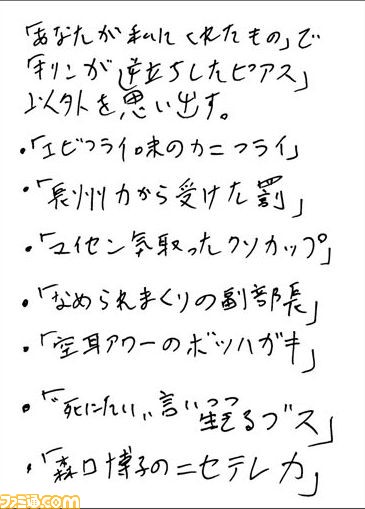 「あなたが私にくれたもの」で
「キリンが逆立ちしたピアス」
以外を思い出す。
・「エビフライ味のカニフライ」
・「長州力から受けた罰」
・「マイセン気取ったクソカップ」
・「なめられまくりの副部長」
・「空耳アワーのボツハガキ」
・「"死にたい"言いつつ
生きるブス」
・「森口博子のニセテレカ」
ファミ通.com